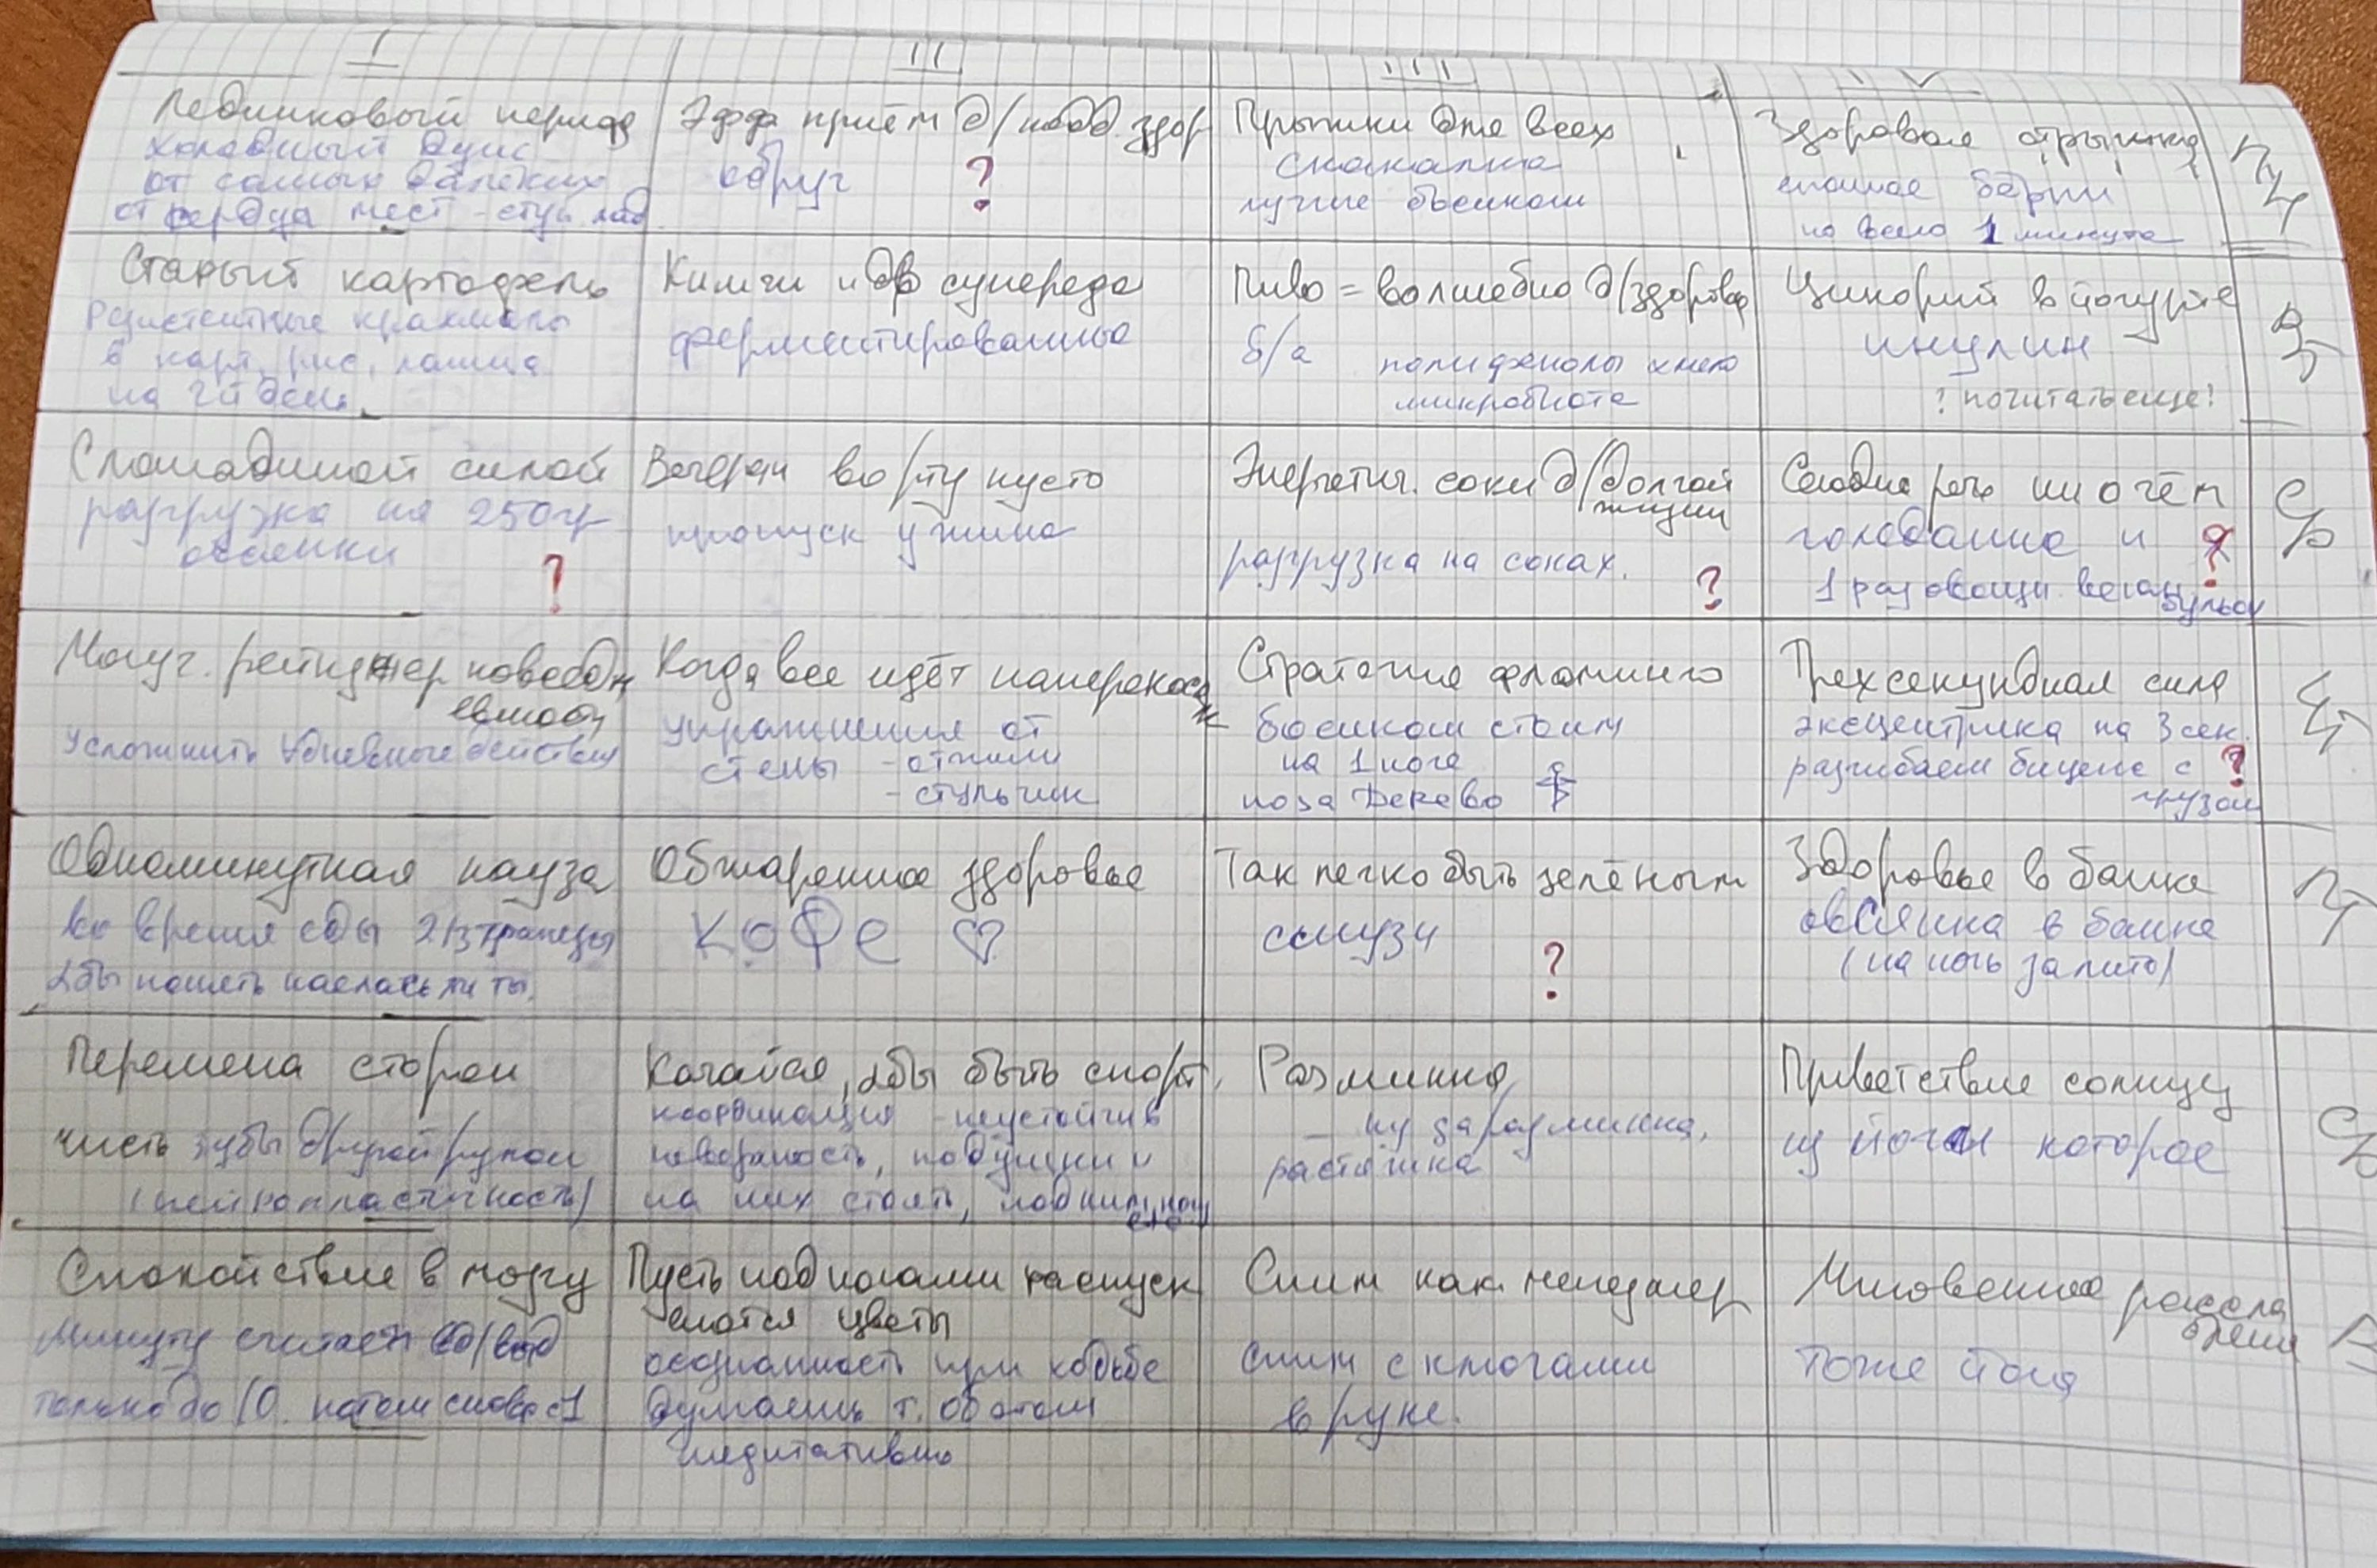 I
II
III
IV
Ледниковый период
холодный душ
от самых далёких
от сердца мест - ступ, лад.
Эфф приём д/подд. здор
обруч ?
Прыжки для всех
скакалка
лучше босиком
Здоровая
на всего 1 минута
ПН
Старый картофель
Резистентные крахмалы
в карт, рис, лапша
на 2й день.
Кимчи и др суперeда
ферментированные
Пиво = волшебно д/здоровья
б/а полифенолы хмеля
микробиота
Цикорий в йогурте
инулин
? почитать еще!
ВТ
С лошадиной силой
разгрузка на 250гр
овсянки
?
Вечером во рту пусто
пропуск ужина
Энергетич. соки д/долгой
жизни
разгрузка на соках. ?
Сегодня речь ни о чём
голодание и ?
1 раз овощн. веган бульон
СР
Могуч. рейнджер повседн
евности
Усложнить дневные действия
Когда все идёт наперекосяк
упражнения от
стены - отжим
- стульчик
Стратегия фламинго
босиком стоим
на 1 ноге
поза Дерево
Трехсекундная сила
эксцентрика на 3 сек.
разгибаем бицепс с ?
грузом
ЧТ
Одноминутная пауза
во время еды 2/3 трапезы
чтобы понять наелась ли ты.
Обжаренное здоровье
КОФЕ ♡
Так легко быть зелёным
смузи
?
Здоровье в банке
овсянка в банке
(на ночь залито)
ПТ
Перемена сторон
чисть зубы другой рукой
(нейропластичность)
Качайся, чтбы быть спорт.
координация - неустойчив
поверхность, подушки и
на них стоять,
Разминка
- ну да разминка,
растяжка
Приветствие солнцу
из йоги которое
СБ
Спокойствие в мозгу
Минуту считаем вд/выд
только до 10. потом снова с 1
Пусть под ногами распуск
аются цветы
осознанность при ходьбе
думаешь т. об этом
медитативно
Спим как менеджер
спим с ключами
в руке.
Мгновенное рассла
бление
тоже йога
В